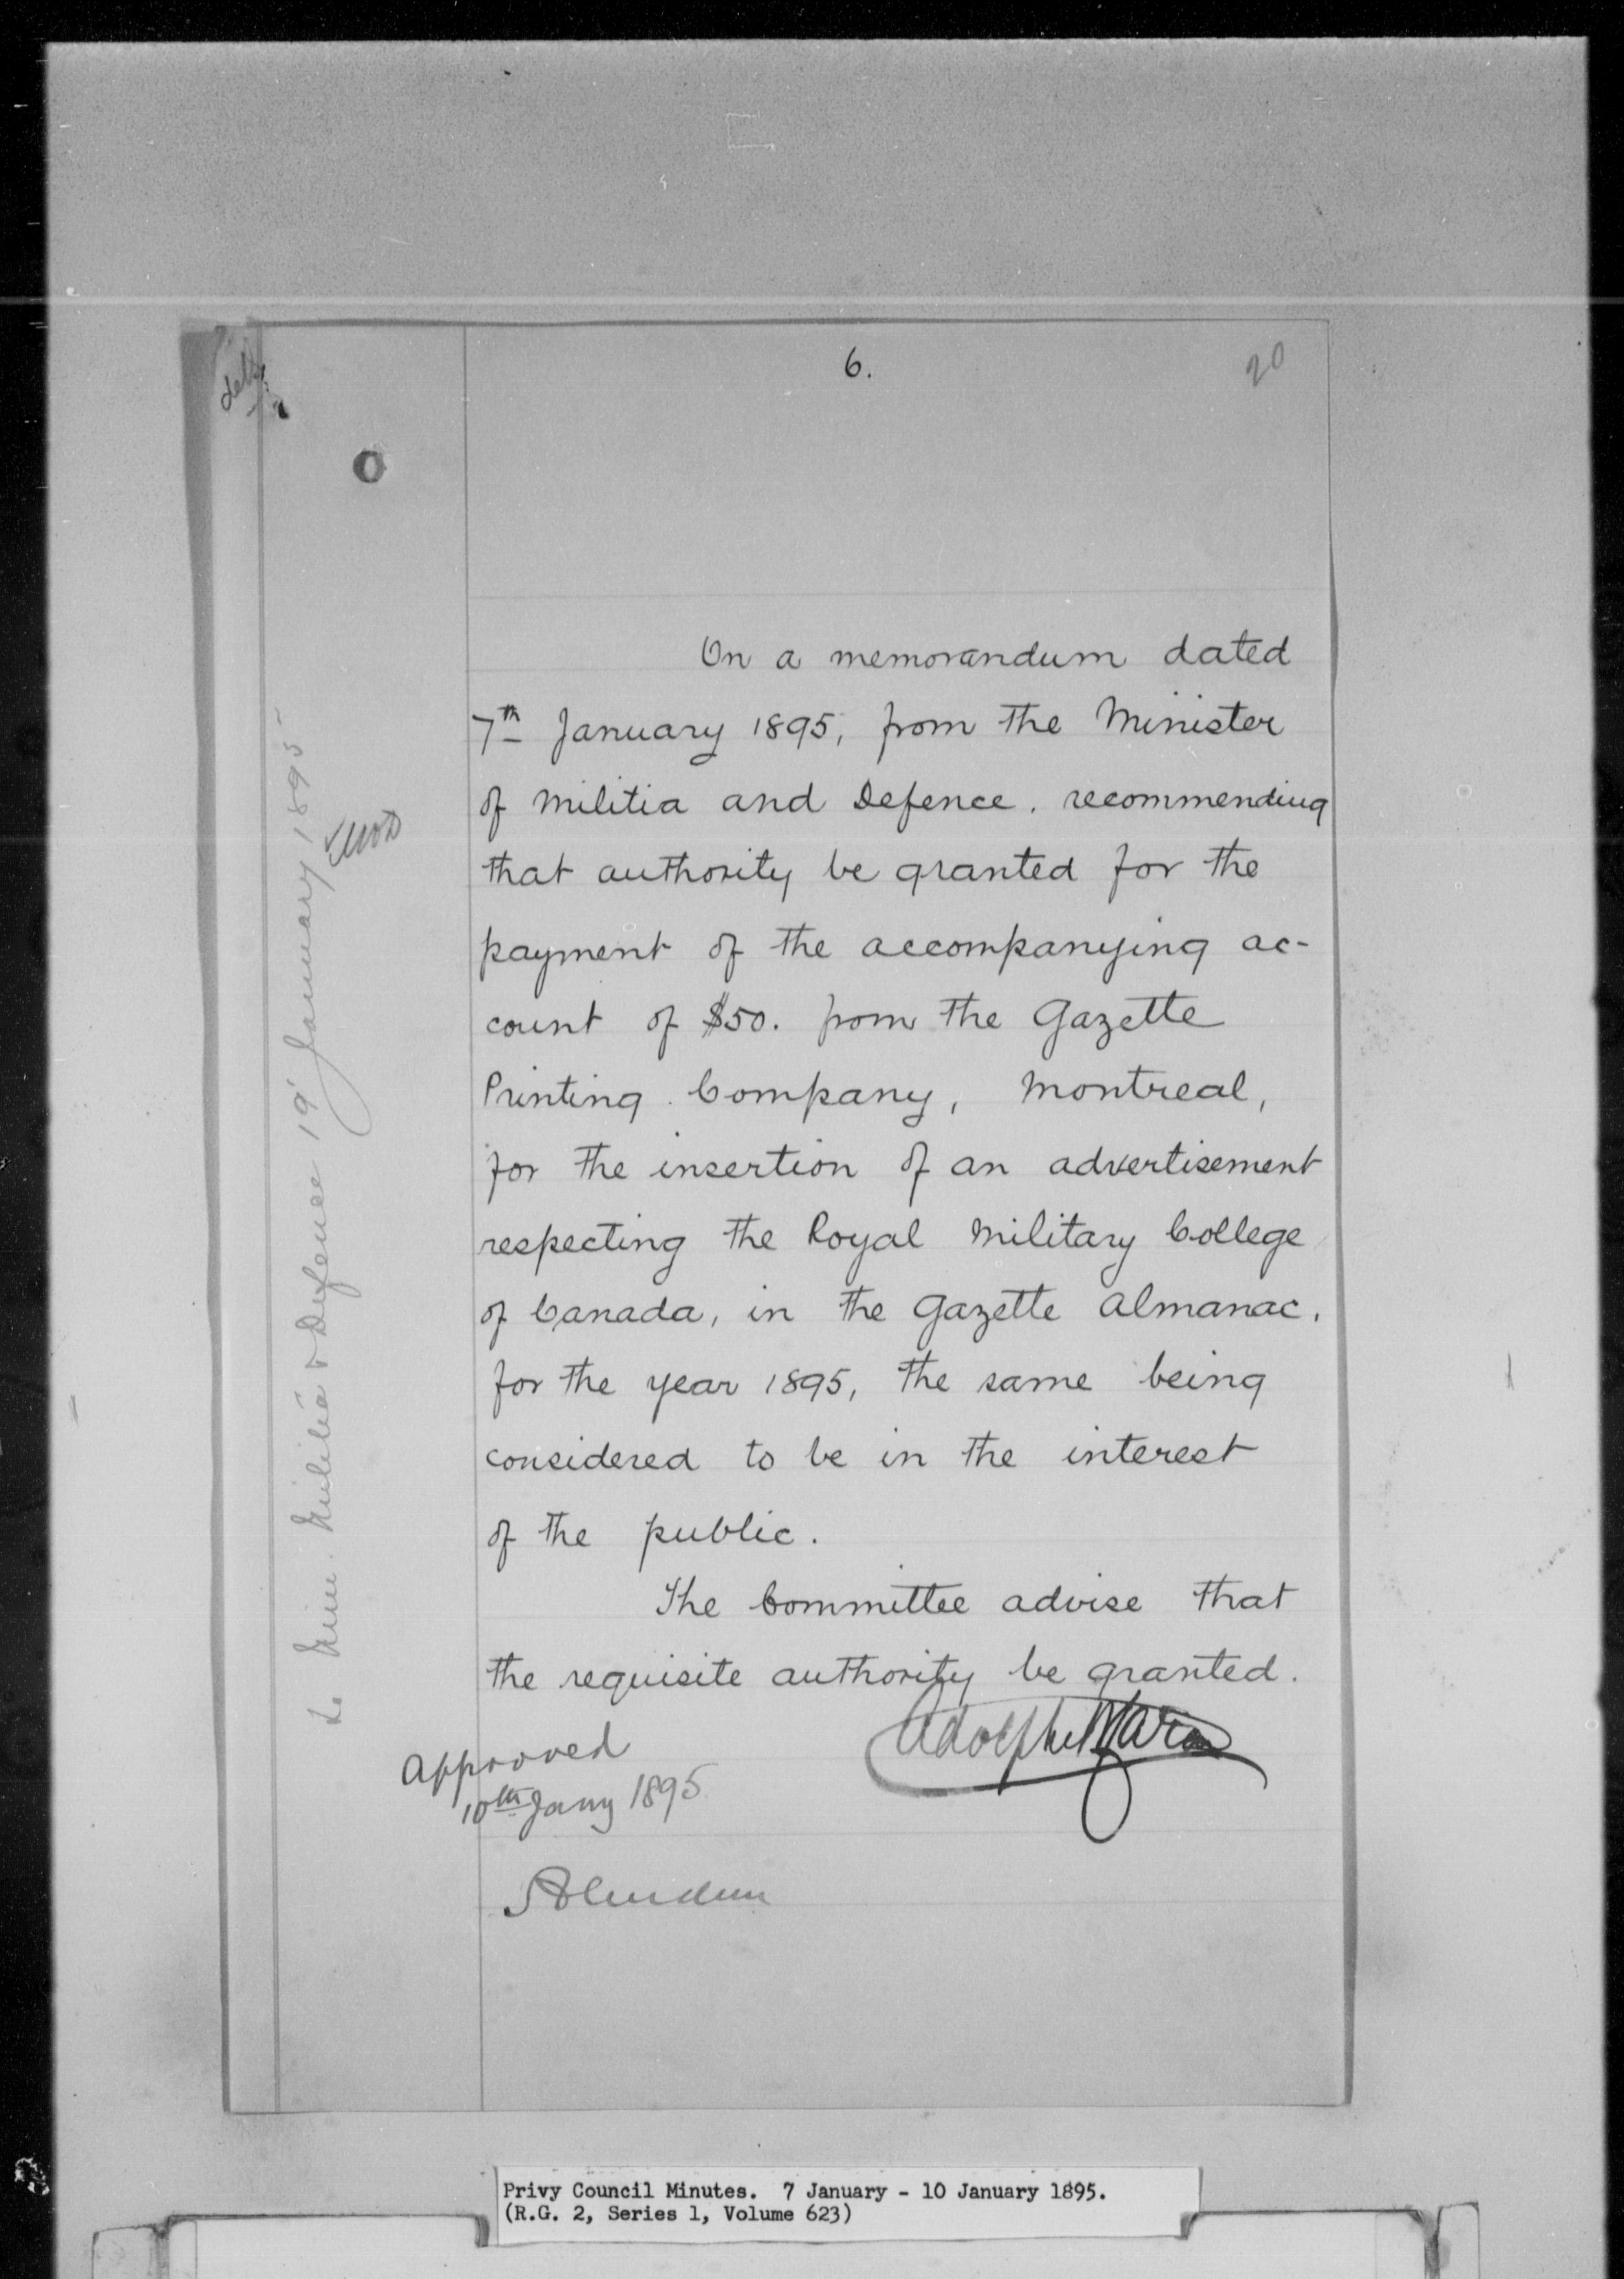 6.
20
On a memorandum dated
7th January 1895, from the Minister
of Militia and Defence. recommending
that authority be granted for the
payment of the accompanying ac-
count of $50. from the Gazette
Printing Company, Montreal,
for the insertion of an advertisement
respecting the Royal Military College
of Canada, in the Gazette Almanac.
for the year 1895, the same being
considered to be in the interest
of the public.
The Committee advise that
the requisite authority be granted.
Adolphe Caron
Approved
10th Jany 1895
Aberdeen
Min. Militia & Defence 19 January 1895
Privy Council Minutes. 7 January - 10 January 1895.
(R.G. 2, Series 1, Volume 623)